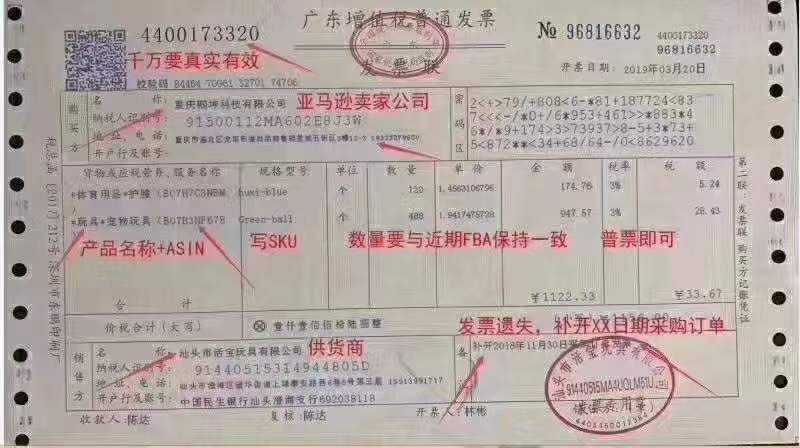 4400173320
广东增值税普通发票
№ 96816632
4400173320
96816632
千万要真实有效
发票联
校验码 84464 70961 32701 74706
开票日期：2019年03月20日
税总函
购买方
名 称：重庆鹏坤科技有限公司
亚马逊卖家公司
纳税人识别号：91500112MA602E8J3W
地址、电话：
开户行及账号：
密码区
2<+>79/+808<6-*81+187724<83
7<<<-/*0/6*953+461>>*883*4
6*/*9+174>3>73937>8-5+3*73+
5<872**<34+68/64-/0<8629620
货物或应税劳务、服务名称
规格型号
单位
数 量
单 价
金 额
税率
税 额
*体育用品*护膝（B07H7C5NBM
huxi-blue
个
120
1.4563106796
174.76
3%
5.24
*玩具*宠物玩具（B07B3NF67B
Green-ball
个
488
1.9417475728
947.57
3%
28.43
产品名称+ASIN
写SKU
数量要与近期FBA保持一致
普票即可
合 计
￥1122.33
￥33.67
价税合计（大写）
发票遗失，补开XX日期采购订单
销售方
名 称：汕头市活宝玩具有限公司
供货商
纳税人识别号：91440515314944805D
地址、电话：
开户行及账号：中国民生银行汕头澄海支行692038118
备
补开2018年11月30日
收款人：陈达
复核：陈达
开票人：林彬
汕头市活宝玩具有限公司
第二联：发票联 购买方记账凭证